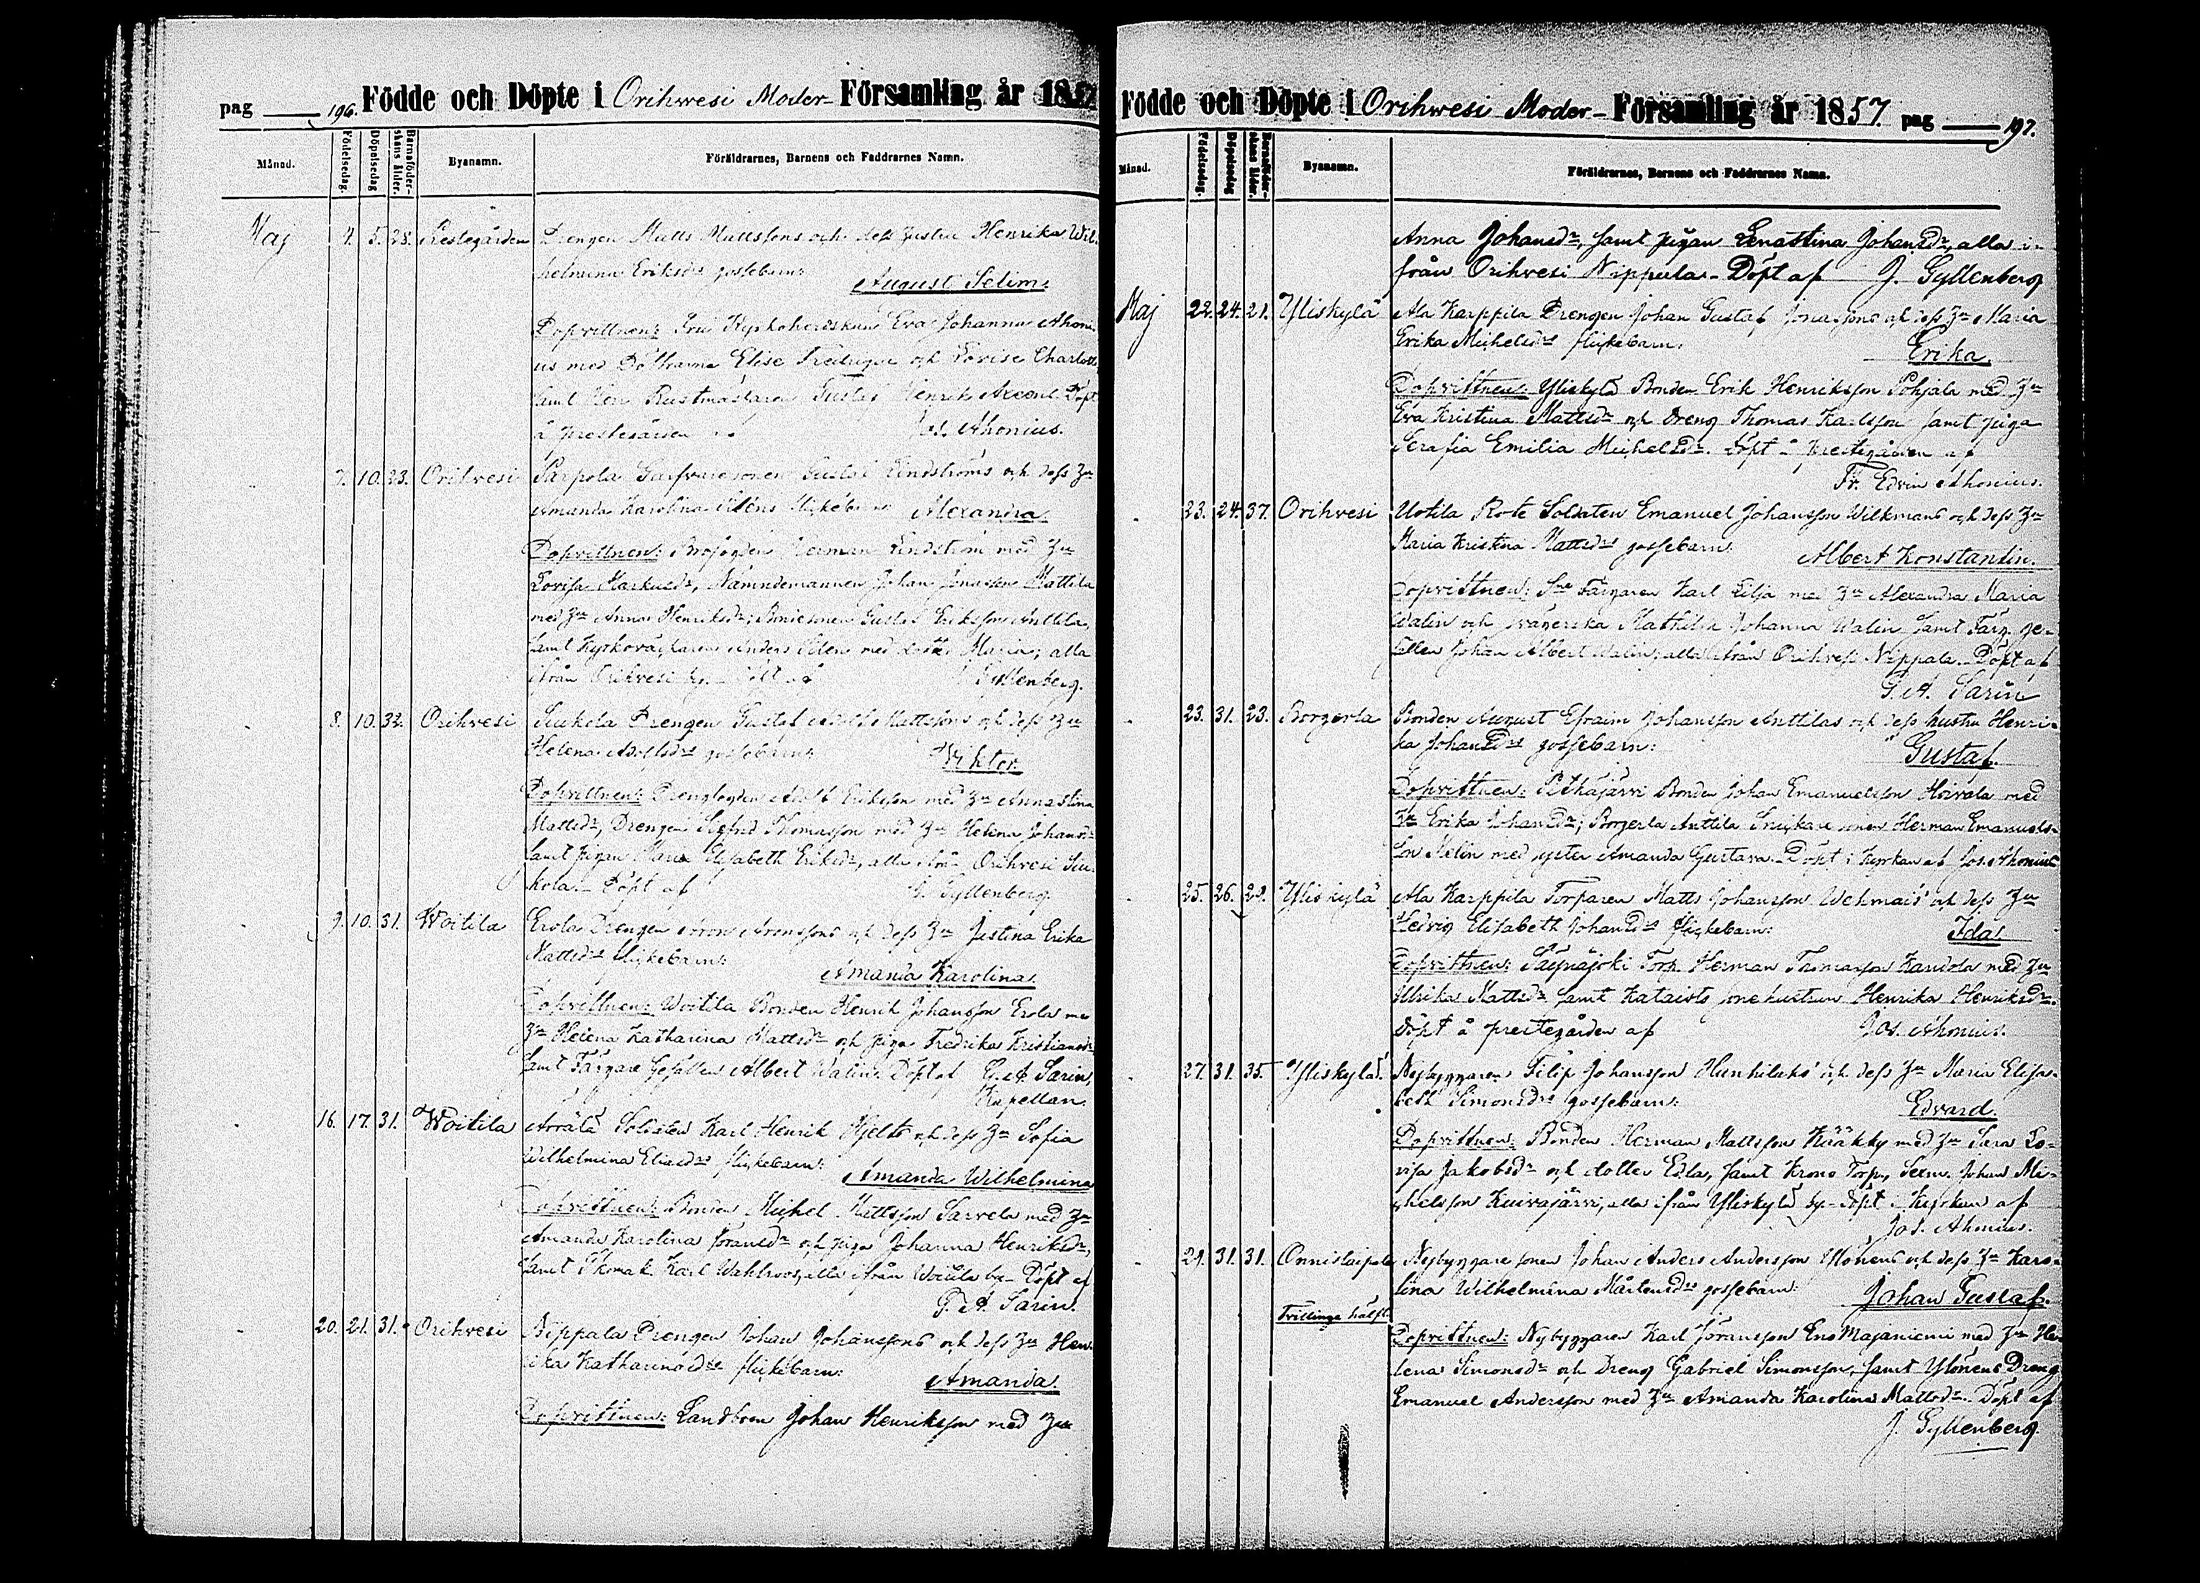 pag 196. Födde och Döpte i Orihwesi Moder-Församling år 1857
Månad. Födelsedag. Döpelsedag Barnaföder-skans ålder. Byanamn. Föräldrarnes, Barnens och Faddrarnes Namn.
Maj 4. 5. 28. Prestegården Drengen Matts Mattssons och dess hustru Henrika Wil-
helmina Eriksdrs gossebarn:
August Selim.
Dopvittnen: Fru Kyrkoherdskan Eva Johanna Ahoni-
us med Döttrarna Elise Fredrique och Lovise Charlotte
samt Herr Rustmästaren Gustaf Henrik Döpt
å prestegården af Jos. Ahonius.
7. 10. 23. Orihvesi Parpola Garfvaresonen Gustaf Lindströms och dess Hu
Amanda Karolina flickebarn Alexandra.
Dopvittnen: Herman Lindström med Hu
Lovisa Markusdr, Nämndemannen Johan Jonasson Mattila
med Hu Anna Henriksdr; Bondesonen Gustaf Eriksson Anttila,
samt Anders med dotter Maria; alla
ifrån Orihvesi by. Döpt af J. Gyllenberg.
8. 10. 32. Orihvesi Siukola Drengen Gustaf Mattssons och dess Hu
Helena Adolfsdrs gossebarn:
Viktor.
Dopvittnen: Drengfogden Adolf Eriksson med Hu Annastina
Mattsdr, Drengen Sigfrid Thomasson med Hu Helena Johansdr
samt pigan Maria Elisabeth Eriksdr, alla ifrån Orihvesi Siu-
kola. Döpt af J. Gyllenberg.
9. 10. 31. Woitila Erola Drengen Aron Aronssons och dess Hu Justina Erika
Mattsdrs flickebarn:
Amanda Karolina.
Dopvittnen: Woitila Bonden Henrik Johansson Erola med
Hu Helena Katharina Mattsdr och piga Fredrika Kristiansdr
samt Färgare Gesällen Albert Walin. Döpt af G. A. Sarin,
Kapellan.
16. 17. 31. Woitila Arrälä Soldaten Karl Henrik Hjelts och dess Hu Sofia
Wilhelmina Eliaedrs flickebarn:
Amanda Wilhelmina
Dopvittnen: Bonden Michel Mattsson Sarvela med Hu
Amanda Karolina Göransdr och piga Johanna Henriksdr,
samt Skomak. Karl Wahlroos, alla ifrån Woitila by. Döpt af
G. A. Sarin.
20. 21. 31. Orihvesi Nippala Drengen Johan Johanssons och dess Hu Hen-
rika Katharina flickebarn:
Amanda.
Dopvittnen: Landboen Johan Henriksson med Hu
Födde och Döpte i Orihwesi Moder-Församling år 1857. pag 197.
Månad. Födelsedag. Döpelsedag Barnaföder-skans ålder. Byanamn. Föräldrarnes, Barnens och Faddrarnes Namn.
Anna Johansdr, samt pigan Lenastina Johansdr, alla i-
från Orihvesi Nippala. Döpt af J. Gyllenberg
Maj 22. 24. 21. Yliskylä Ala Karppila Drengen Johan Gustaf Jonassons och dess Hu Maria
Erika Michelsdrs flickebarn:
Erika.
Dopvittnen: Yliskylä Bonden Erik Henriksson Pohjala med Hu
Eva Kristina Mattsdr och Dreng Thomas Karlsson samt piga
Serafia Emilia Michelsdr. Döpt å prestegården af
Fr. Edvin Ahonius.
23. 24. 37. Orihvesi Uotila Rote Soldaten Emanuel Johansson Wilkmans och dess Hu
Maria Kristina Mattsdrs gossebarn:
Albert Konstantin.
Dopvittnen: Färgaren Karl Lilja med Hu Alexandra Maria
Walin och svägerska Mathilda Johanna Walin samt Färg. ge-
sellen Johan Albert Walin; alla ifrån Orihvesi Nippala. Döpt af
G. A. Sarin
23. 31. 23. Borgerla Bonden August Efraim Johansson Anttilas och dess hustru Henri-
ka Johansdrs gossebarn:
Gustaf.
Dopvittnen: Pitkäjärvi Bonden Johan Emanuelsson Hoivala med
Hu Erika Johansdr; Borgerla Anttila Snickare sonen Herman Emanuels-
son Melin med syster Amanda Gustava. Döpt i kyrkan af Jos. Ahonius
25. 26. 29. Yliskylä Ala Karppila Torparen Matts Johansson Wehmais' och dess Hu
Hedvig Elisabeth Johansdrs flickebarn:
Ida.
Dopvittnen: Säynäjoki Torp. Herman Thomasson Kandola med Hu
Ulrika Mattsdr samt Kataisto sonehustrun Henrika Henriksdr.
Döpt å prestegården af Jos. Ahonius.
27. 31. 35. Yliskylä. Nybyggaren Filip Johansson Hunhilaks' och dess Hu Maria Elisa-
beth Simonsdrs gossebarn:
Edvard.
Dopvittnen: Bonden Herman Mattsson Kääkky med Hu Sara Lo-
visa Jakobsdr och dotter Edla, samt Krono Torp. Sexm. Johan Mi-
chelsson Kuivajärvi, alla ifrån Yliskylä by. Döpt i kyrkan af
Jos. Ahonius.
29. 31. 31. Onnistaipale Nybyggare sonen Johan Anders Andersson Ylönens och dess Hu Karo-
lina Wilhelmina Mårtensdrs gossebarn:
Johan Gustaf.
Tvillinge hälft.
Dopvittnen: Nybyggaren Karl Göransson Eno Majaniemi med Hu He-
lena Simonsdr och Dreng Gabriel Simonsson, samt Ylönens Dreng
Emanuel Andersson med Hu Amanda Karolina Mattsdr. Döpt af
J. Gyllenberg.